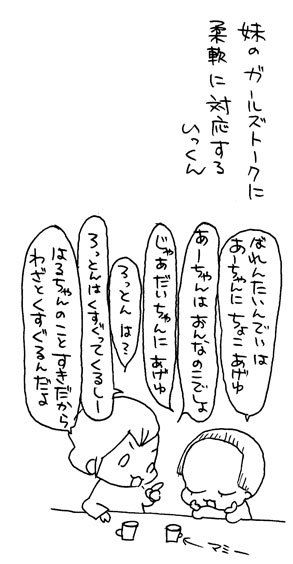 妹のガールズトークに
柔軟に対応する
いっくん
ばれんたいんでぃは
あーちゃんにちょこあげゆ
あーちゃんはおんなのこでしょ
じゃあだいちゃんにあげゆ
ろっとんは？
ろっとんはくすぐってくるしー
はるちゃんのことすきだから
わざとくすぐるんだよ
マミー